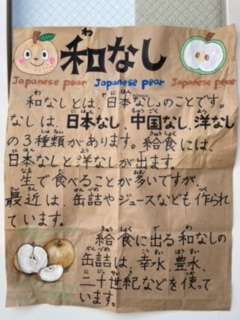 和なし
Japanese pear Japanese pear Japanese pear
和なしとは、日本なしのことです。
なしは、日本なし、中国なし、洋なし
の3種類があります。給食には、
日本なしと洋なしが出ます。
生で食べることが多いですが、
最近は、缶詰やジュースなども作られ
ています。
給食に出る和なしの
缶詰は、幸水、豊水、
二十世紀などを使って
います。